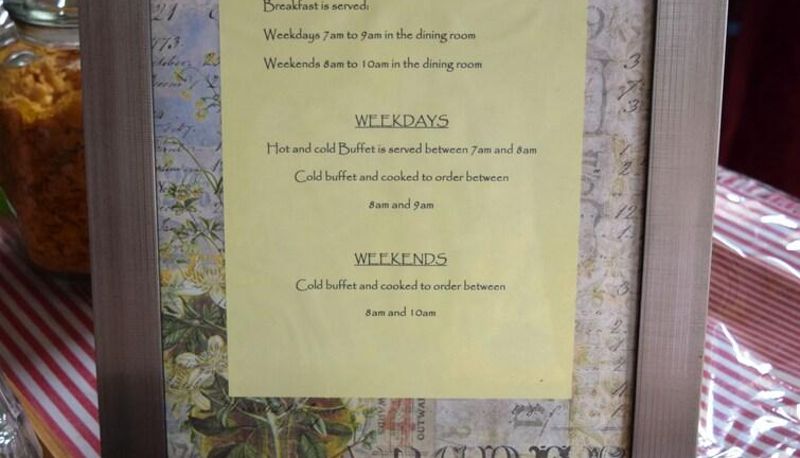 Breakfast is served:
Weekdays 7am to 9am in the dining room
Weekends 8am to 10am in the dining room
WEEKDAYS
Hot and cold Buffet is served between 7am and 8am
Cold buffet and cooked to order between
8am and 9am
WEEKENDS
Cold buffet and cooked to order between
8am and 10am